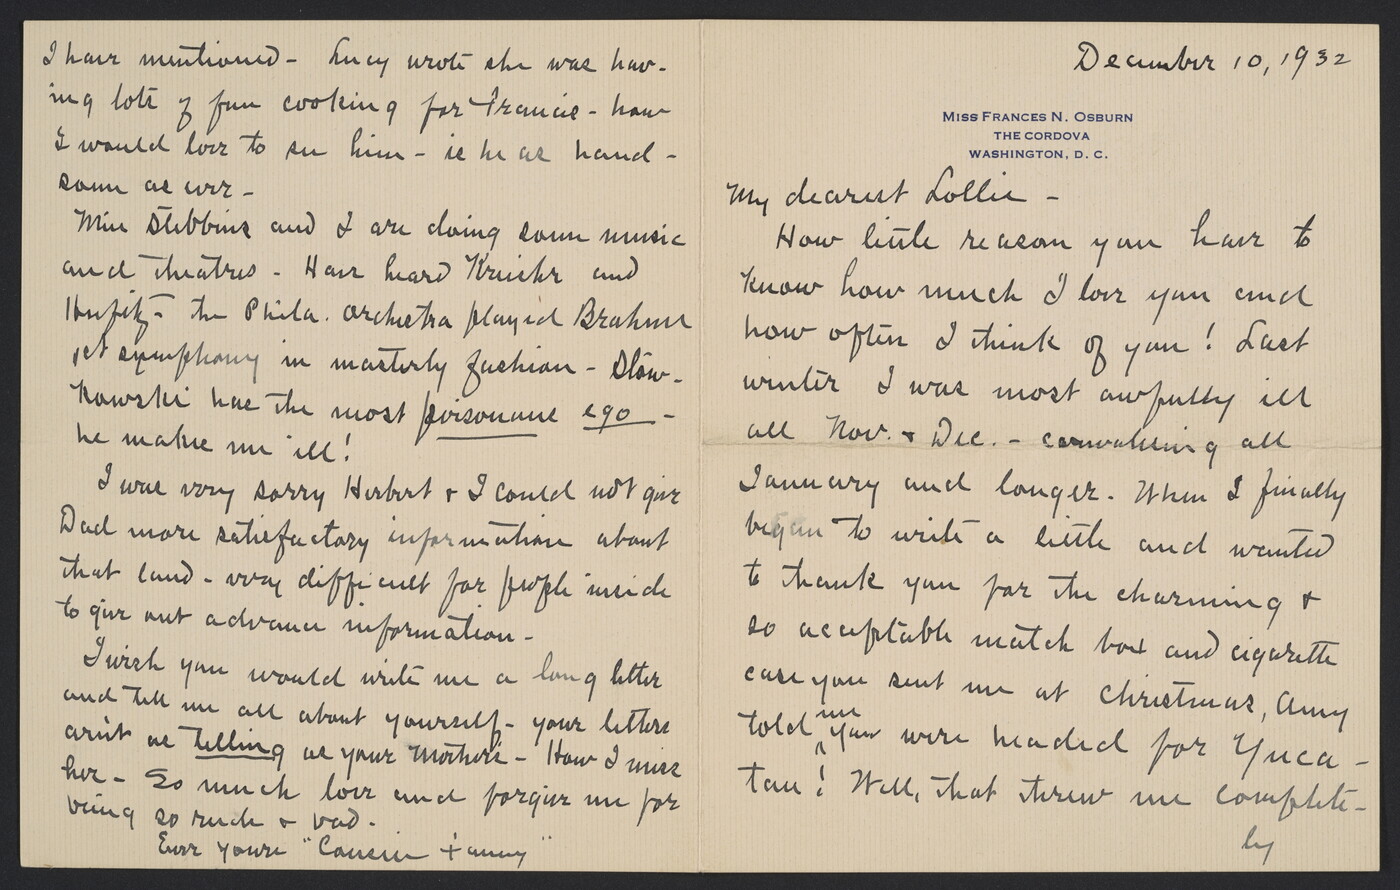 December 10, 1932
MISS FRANCES N. OSBURN
THE CORDOVA
WASHINGTON, D. C.
My dearest Lollie -
How little reason you have to
know how much I love you and
how often I think of you! Last
winter I was most awfully ill
all Nov. & Dec. - convalescing all
January and longer. When I finally
began to write a little and wanted
to thank you for the charming &
so acceptable match box and cigarette
case you sent me at Christmas, Amy
told me you were headed for Yuca-
tan! Well, that threw me complete-
ly
I have mentioned - Lucy wrote she was hav-
ing lots of fun cooking for Francis - how
I would love to see him - is he as hand-
some as ever -
Miss Stebbins and I are doing some music
and theatres - Have heard Kreisler and
Heifitz - the Phila. orchestra played Brahms
1st symphony in masterly fashion - Stow-
kowski has the most poisonous ego -
he makes me ill!
I was very sorry Herbert & I could not give
Dad more satisfactory information about
that land - very difficult for people inside
to give out advance information -
I wish you would write me a long letter
and tell me all about yourself - your letters
arn't as telling as your Mother's - How I miss
her - So much love and forgive me for
being so rude & bad.
Ever yours "Cousin Fanny"